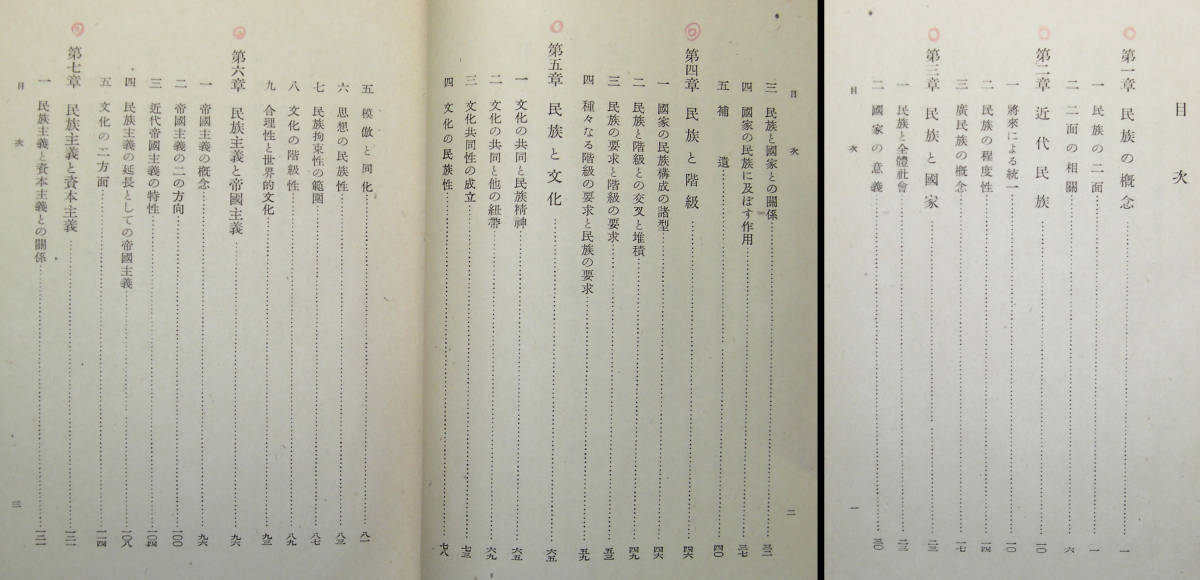 目次
第一章 民族の槪念……一
一 民族の二面……一
二 二面の相關……六
第二章 近代民族……一〇
一 將來による統一……一〇
二 民族の程度性……一四
三 廣民族の槪念……一七
第三章 民族と國家……二三
一 民族と全體社會……二三
二 國家の意義……三〇
目次
一
目次
三 民族と國家との關係……三二
四 國家の民族に及ぼす作用……三七
五 補遺……四〇
第四章 民族と階級……四六
一 國家の民族構成の諸型……四六
二 民族と階級との交叉と堆積……四九
三 民族の要求と階級の要求……五三
四 種々なる階級の要求と民族の要求……五九
第五章 民族と文化……六五
一 文化の共同と民族精神……六五
二 文化の共同と他の紐帶……六九
三 文化共同性の成立……七三
四 文化の民族性……七八
二
五 模倣と同化……八一
六 思想の民族性……八三
七 民族拘束性の範圍……八七
八 文化の階級性……八九
九 合理性と世界的文化……九三
第六章 民族主義と帝國主義……九六
一 帝國主義の槪念……九六
二 帝國主義の二の方向……一〇〇
三 近代帝國主義の特性……一〇四
四 民族主義の延長としての帝國主義……一〇八
五 文化の二方面……一一四
第七章 民族主義と資本主義……一二一
一 民族主義と資本主義との關係……一二一
目次
三